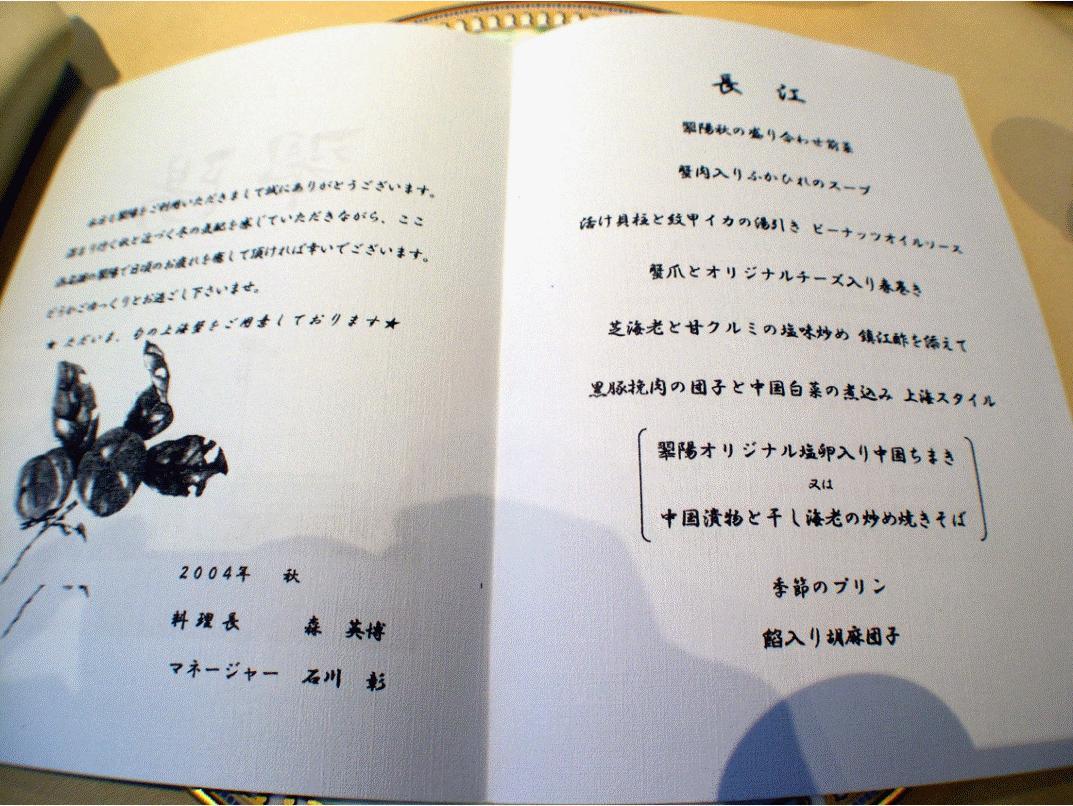 本日も翠陽をご利用いただきまして誠にありがとうございます。
深まり行く秋と近づく冬の気配を感じていただきながら、ここ
翠陽で日頃のお疲れを癒して頂ければ幸いでございます。
どうかごゆっくりとお過ごし下さいませ。
★ ただいま、旬の上海蟹をご用意しております★
2004年 秋
料理長 森 英博
マネージャー 石川 彰
長 江
翠陽秋の盛り合わせ前菜
蟹肉入りふかひれのスープ
活け貝柱と紋甲イカの湯引き ピーナッツオイルソース
蟹爪とオリジナルチーズ入り春巻き
芝海老と甘クルミの塩味炒め 鎮江酢を添えて
黒豚挽肉の団子と中国白菜の煮込み 上海スタイル
翠陽オリジナル塩卵入り中国ちまき
又は
中国漬物と干し海老の炒め焼きそば
季節のプリン
餡入り胡麻団子